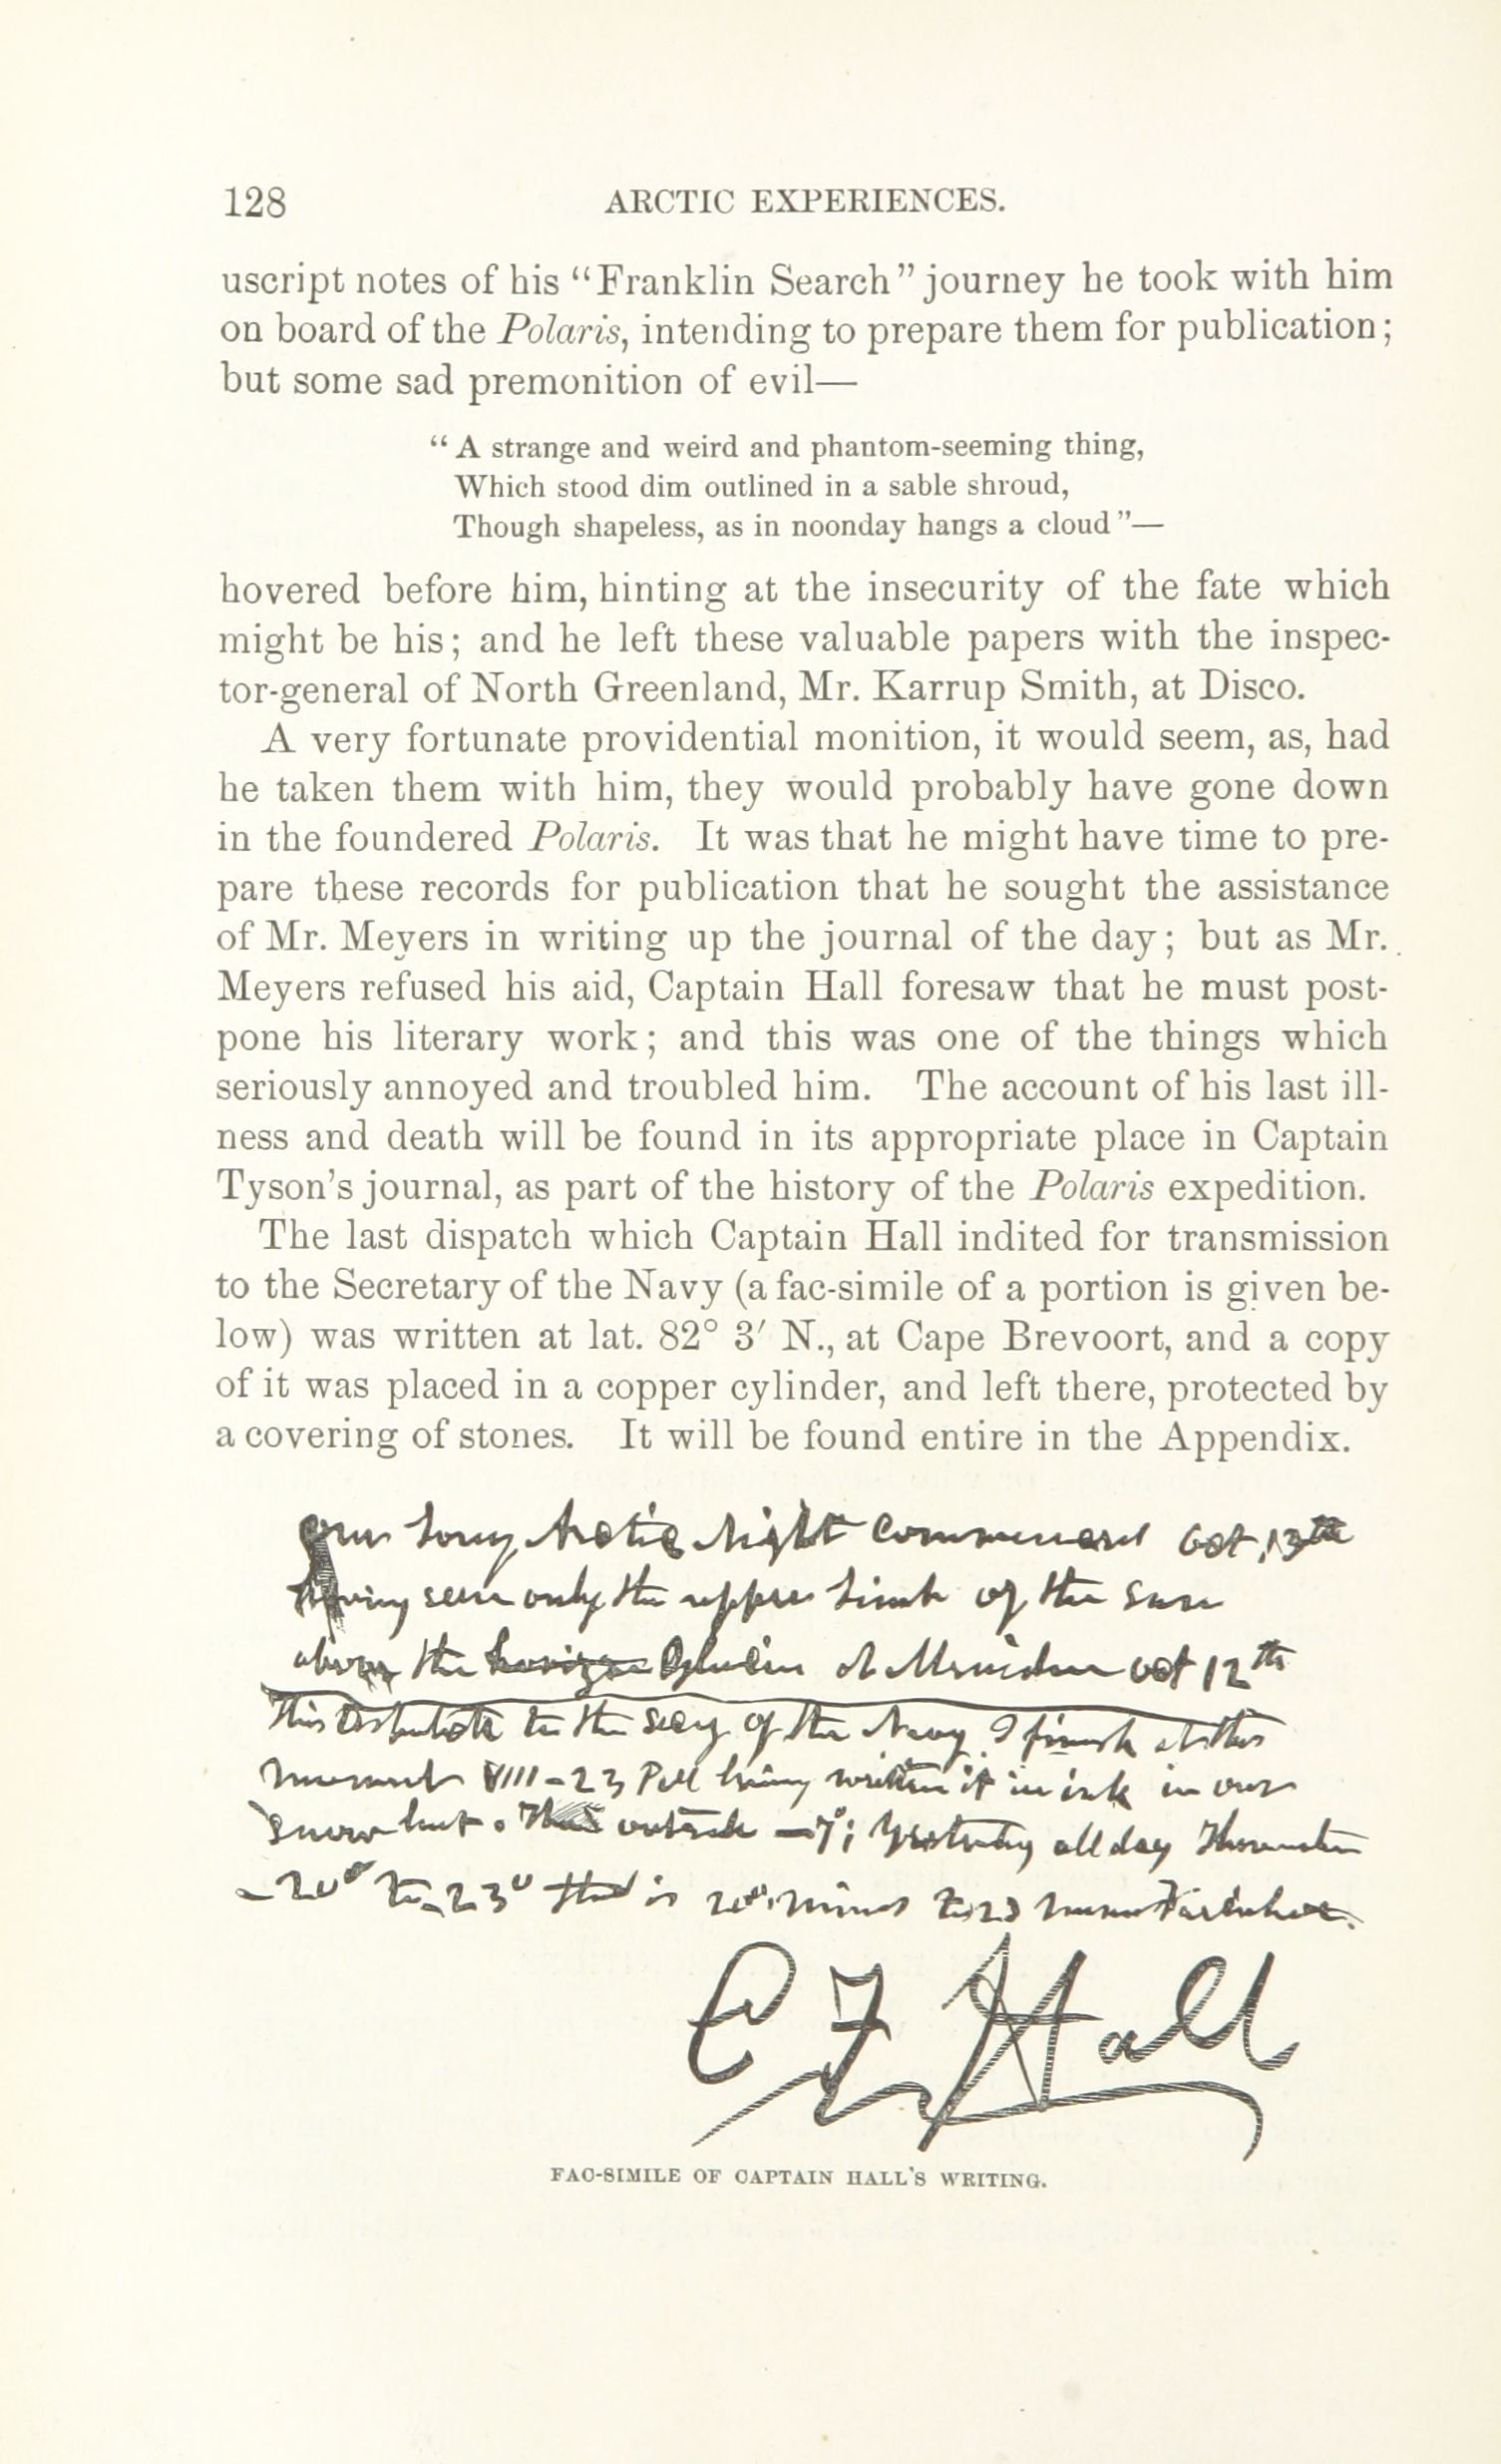 128 ARCTIC EXPERIENCES.
uscript notes of his “Franklin Search” journey he took with him
on board of the Polaris, intending to prepare them for publication;
but some sad premonition of evil—
“A strange and weird and phantom-seeming thing,
Which stood dim outlined in a sable shroud,
Though shapeless, as in noonday hangs a cloud”—
hovered before him, hinting at the insecurity of the fate which
might be his; and he left these valuable papers with the inspec-
tor-general of North Greenland, Mr. Karrup Smith, at Disco.
A very fortunate providential monition, it would seem, as, had
he taken them with him, they would probably have gone down
in the foundered Polaris. It was that he might have time to pre-
pare these records for publication that he sought the assistance
of Mr. Meyers in writing up the journal of the day; but as Mr.
Meyers refused his aid, Captain Hall foresaw that he must post-
pone his literary work; and this was one of the things which
seriously annoyed and troubled him. The account of his last ill-
ness and death will be found in its appropriate place in Captain
Tyson’s journal, as part of the history of the Polaris expedition.
The last dispatch which Captain Hall indited for transmission
to the Secretary of the Navy (a fac-simile of a portion is given be-
low) was written at lat. 82° 3′ N., at Cape Brevoort, and a copy
of it was placed in a copper cylinder, and left there, protected by
a covering of stones. It will be found entire in the Appendix.
Our long Arctic Night commenced Oct. 13th
having seen only the upper limb of the sun
above the Glacier at Meridian Oct 12th
This Dispatch to the Secy of the Navy I finish at this
moment VIII-23 PM having written it in ink in our
Snow hut. outside -7°; Yesterday all day
-20° to -23° that is 20° minus to 23 minus
C F Hall
FAC-SIMILE OF CAPTAIN HALL’S WRITING.